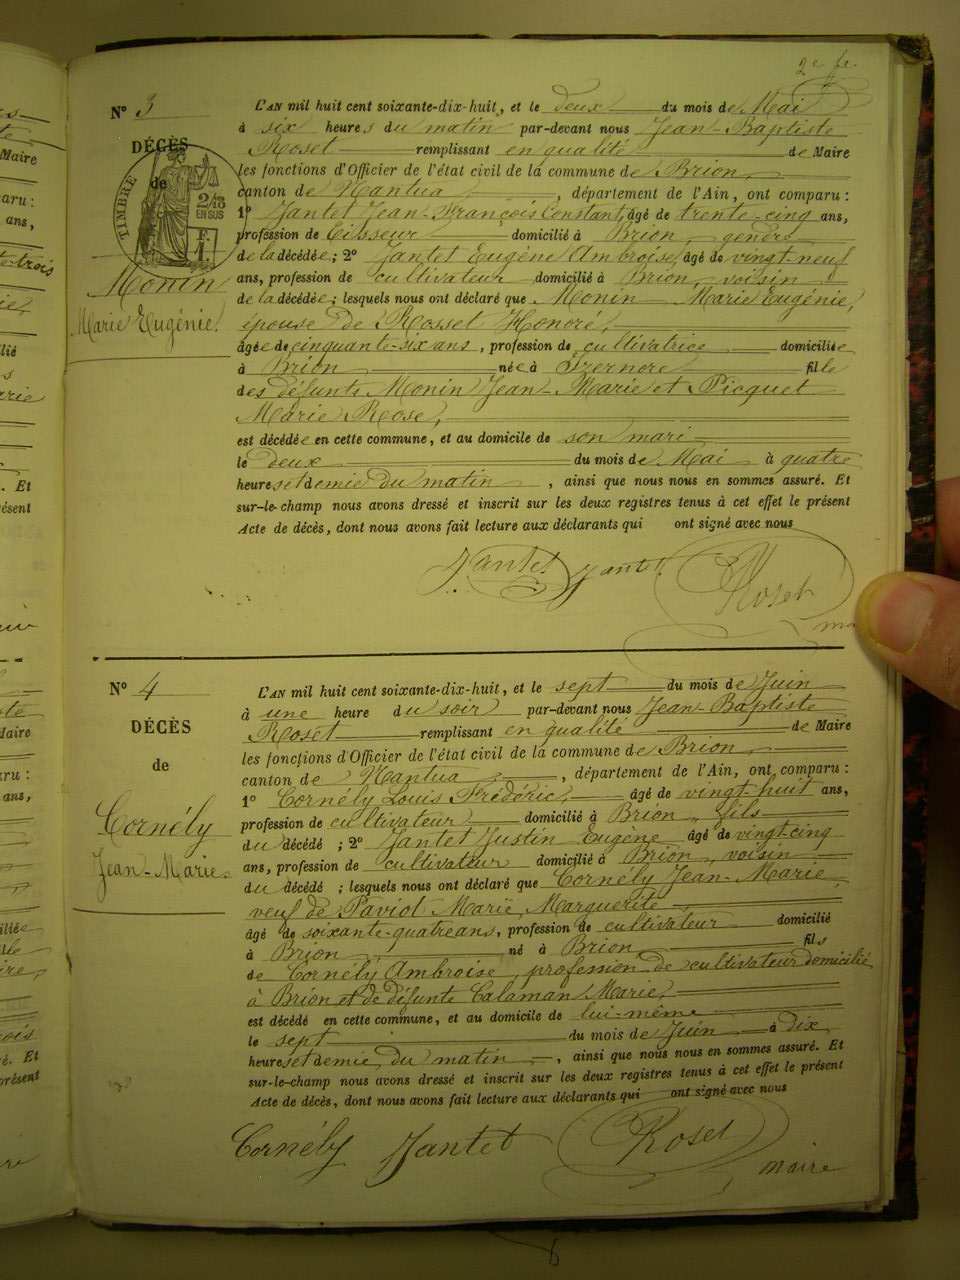 2e fe.
N° 3
DÉCÈS
de
TIMBRE
2/10
EN SUS
F.
1.
Monin
Marie Eugénie.
L'AN mil huit cent soixante-dix-huit, et le deux du mois de Mai
à six heures du matin par-devant nous Jean-Baptiste
Roset remplissant en qualité de Maire
les fonctions d'Officier de l'état civil de la commune de Brion,
canton de Nantua, département de l'Ain, ont comparu :
1° Jantet Jean-François Constant, âgé de trente-cinq ans,
profession de Tisseur domicilié à Brion, gendre
de la décédée ; 2° Jantet Eugène Ambroise, âgé de vingt-neuf
ans, profession de cultivateur domicilié à Brion, voisin
de la décédée ; lesquels nous ont déclaré que Monin Marie Eugénie,
épouse de Rosset Honoré,
âgée de cinquante-six ans, profession de cultivatrice domiciliée
à Brion née à Izernore fille
des défunts Monin Jean-Marie et Picquet
Marie Rose,
est décédée en cette commune, et au domicile de son mari
le deux du mois de Mai à quatre
heures et demie du matin, ainsi que nous nous en sommes assuré. Et
sur-le-champ nous avons dressé et inscrit sur les deux registres tenus à cet effet le présent
Acte de décès, dont nous avons fait lecture aux déclarants qui ont signé avec nous
Jantet Jantet Roset
N° 4
DÉCÈS
de
Cornély
Jean-Marie.
L'AN mil huit cent soixante-dix-huit, et le sept du mois de Juin
à une heure du soir par-devant nous Jean-Baptiste
Roset remplissant en qualité de Maire
les fonctions d'Officier de l'état civil de la commune de Brion,
canton de Nantua, département de l'Ain, ont comparu :
1° Cornély Louis Frédéric, âgé de vingt-huit ans,
profession de cultivateur domicilié à Brion, fils
du décédé ; 2° Jantet Justin Eugène âgé de vingt-cinq
ans, profession de cultivateur domicilié à Brion, voisin
du décédé ; lesquels nous ont déclaré que Cornély Jean-Marie,
veuf de Paviot Marie Marguerite
âgé de soixante-quatre ans, profession de cultivateur domicilié
à Brion, né à Brion fils
de Cornély Ambroise, profession de cultivateur domicilié
à Brion et de défunte Calaman Marie,
est décédé en cette commune, et au domicile de lui-même
le sept du mois de Juin à dix
heures et demie du matin, ainsi que nous nous en sommes assuré. Et
sur-le-champ nous avons dressé et inscrit sur les deux registres tenus à cet effet le présent
Acte de décès, dont nous avons fait lecture aux déclarants qui ont signé avec nous
Cornély Jantet Roset
maire